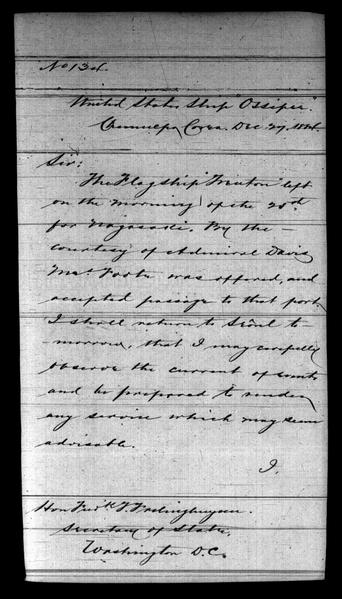 No 132.
United States Ship "Ossipee".
Chemulpo, Corea. Dec 27, 1884.
Sir:
The Flagship "Trenton" left
on the morning of the 25th
for Nagasaki. By the
courtesy of Admiral Davis
Mrs Foote was offered, and
accepted passage to that port.
I shall return to Seoul to-
morrow, that I may carefully
observe the current of events
and be prepared to render
any service which may seem
advisable.
I.
Hon Fredk T. Frelinghuysen.
Secretary of State,
Washington D.C.